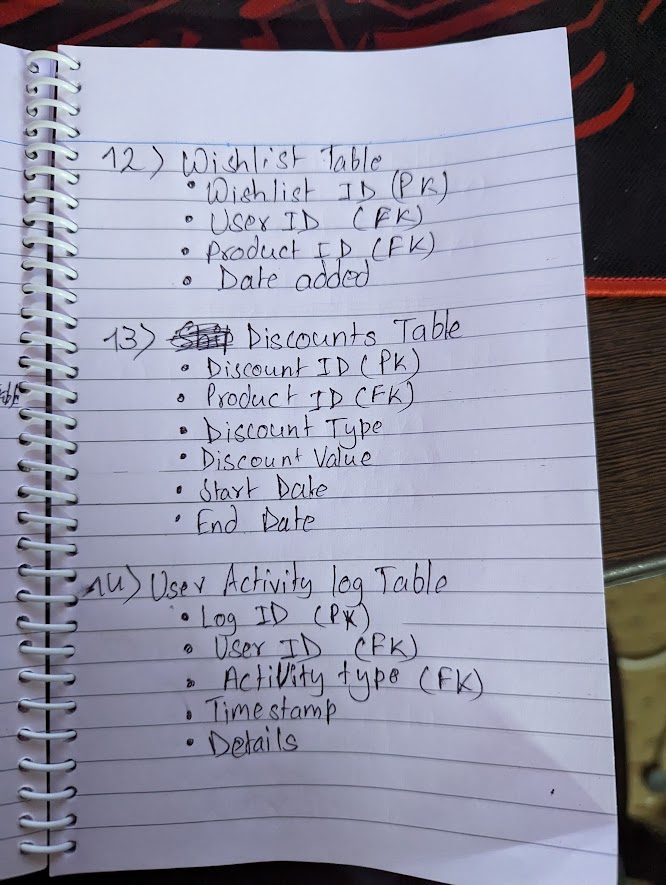 12) Wishlist Table
• Wishlist ID (PK)
• User ID (FK)
• Product ID (FK)
• Date added
13) Discounts Table
• Discount ID (PK)
• Product ID (FK)
• Discount Type
• Discount Value
• Start Date
• End Date
14) User Activity log Table
• Log ID (PK)
• User ID (FK)
• Activity type (FK)
• Timestamp
• Details